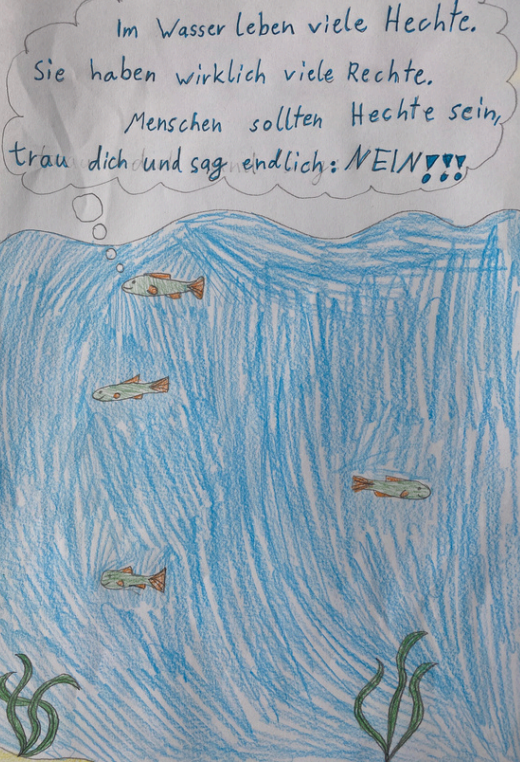 Im Wasser leben viele Hechte.
Sie haben wirklich viele Rechte.
Menschen sollten Hechte sein,
trau dich und sag endlich: NEIN!!!